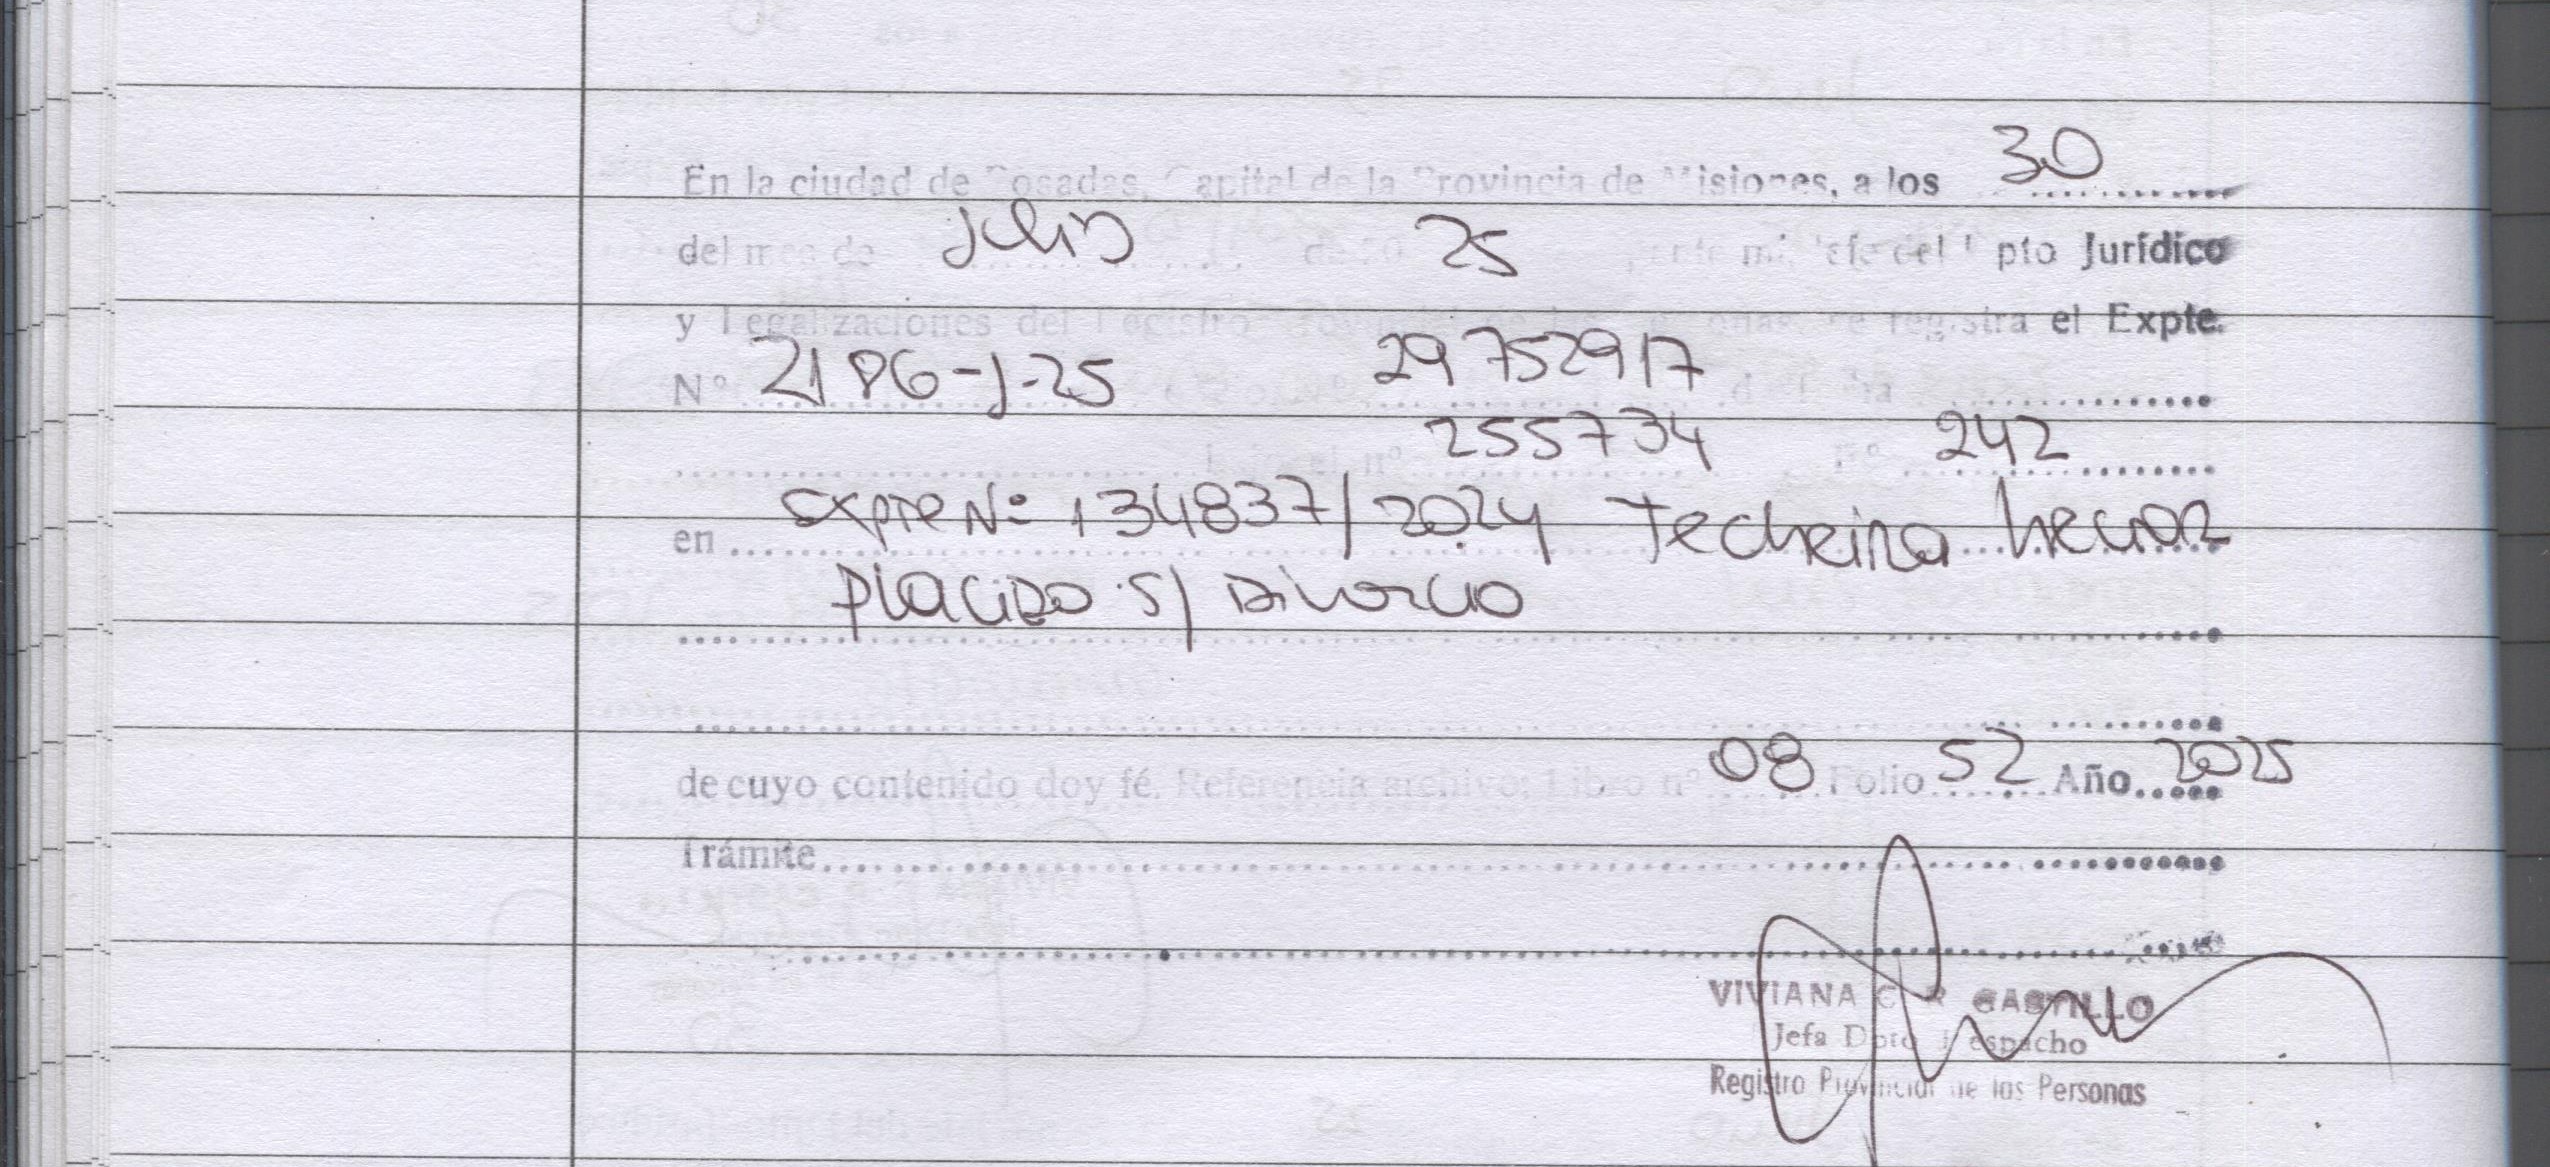 En la ciudad de Posadas, Capital de la Provincia de Misiones, a los 30
del mes de Julio de 20 25 ante mi, Jefe del Dpto Jurídico
y Legalizaciones del Registro Provincial de las Personas, se registra el Expte.
Nº 2186-J-25 29752917
255734 Fº 242
en Expte Nº 134837/2024 Techeira hector
Placido S/ Divorcio
de cuyo contenido doy fé. Referencia archivo: Libro nº 08 Folio 52 Año 2025
Trámite
VIVIANA C. R CASTILLO
Jefa Dpto Despacho
Registro Provincial de las Personas